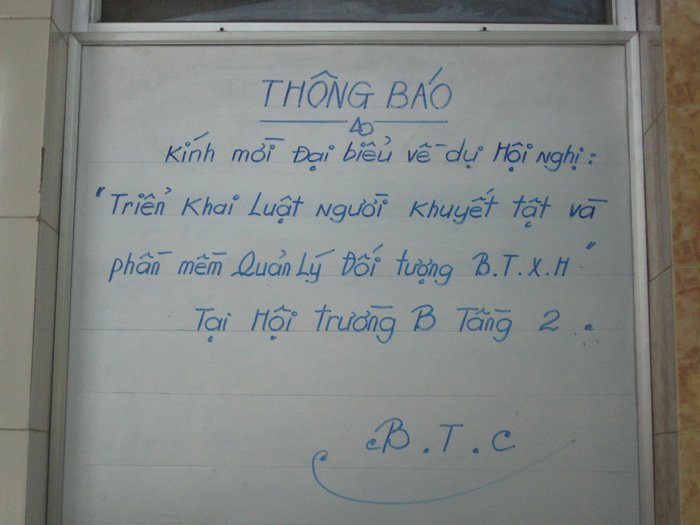 THÔNG BÁO
Kính mời Đại biểu về dự Hội nghị:
"Triển Khai Luật Người Khuyết tật và
phần mềm Quản Lý Đối tượng B.T.X.H"
Tại Hội trường B Tầng 2.
B.T.C